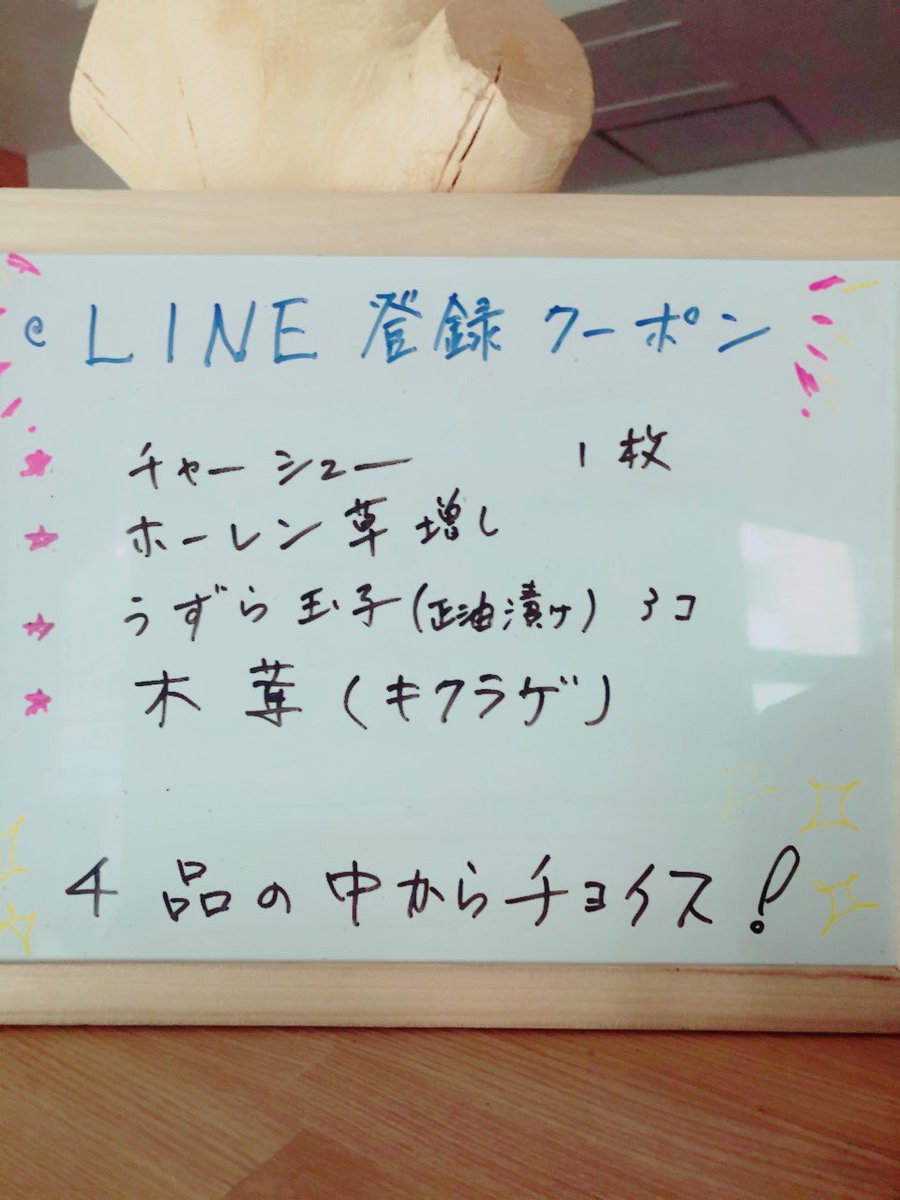 @ LINE 登録クーポン
★ チャーシュー 1枚
☆ ホーレン草増し
☆ うずら玉子(正油漬け) 3コ
★ 木茸(キクラゲ)
4品の中からチョイス!